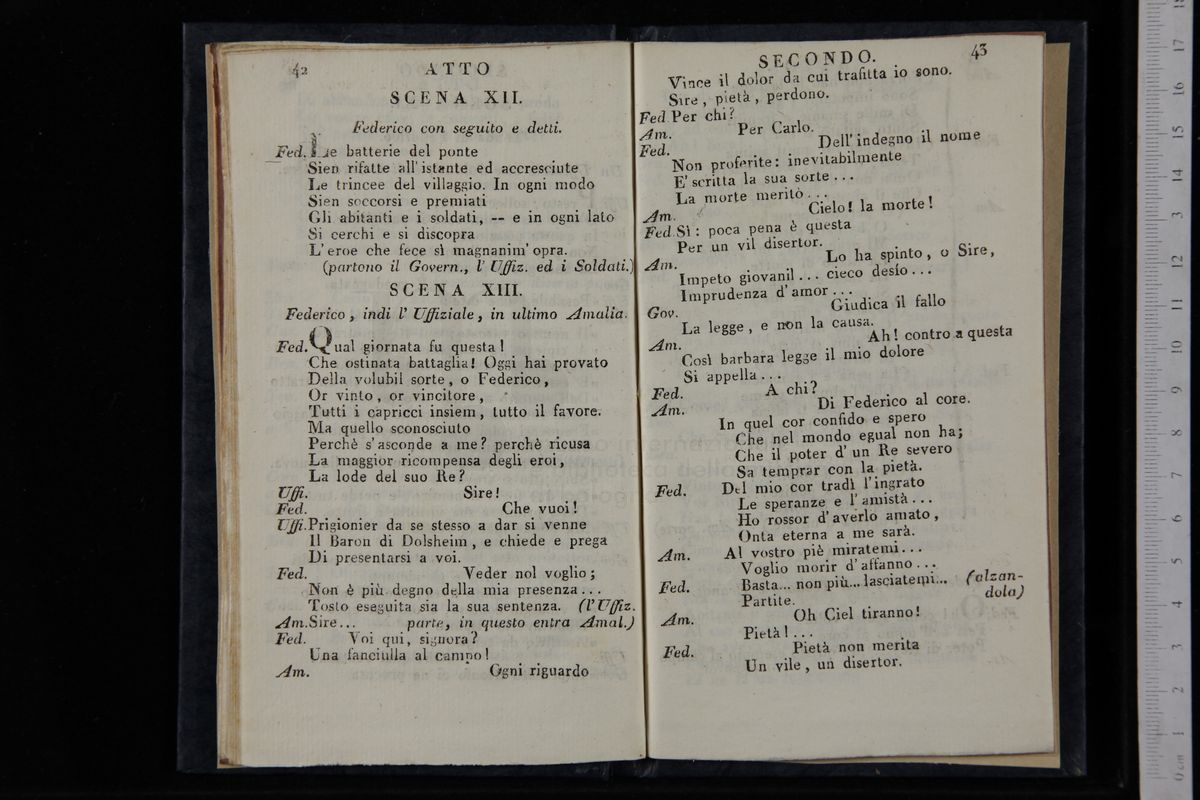 42 ATTO
SCENA XII.
Federico con seguito e detti.
Fed. Le batterie del ponte
Sien rifatte all' istante ed accresciute
Le trincee del villaggio. In ogni modo
Sien soccorsi e premiati
Gli abitanti e i soldati, -- e in ogni lato
Si cerchi e si discopra
L' eroe che fece sì magnanim' opra.
(partono il Govern., l' Uffiz. ed i Soldati.)
SCENA XIII.
Federico, indi l' Uffiziale, in ultimo Amalia.
Fed. Qual giornata fu questa!
Che ostinata battaglia! Oggi hai provato
Della volubil sorte, o Federico,
Or vinto, or vincitore,
Tutti i capricci insiem, tutto il favore.
Ma quello sconosciuto
Perchè s' asconde a me? perchè ricusa
La maggior ricompensa degli eroi,
La lode del suo Re?
Uffi. Sire!
Fed. Che vuoi!
Uffi. Prigionier da se stesso a dar si venne
Il Baron di Dolsheim, e chiede e prega
Di presentarsi a voi.
Fed. Veder nol voglio;
Non è più degno della mia presenza...
Tosto eseguita sia la sua sentenza. (l' Uffiz.
Am. Sire... parte, in questo entra Amal.)
Fed. Voi qui, signora?
Una fanciulla al campo!
Am. Ogni riguardo
SECONDO. 43
Vince il dolor da cui trafitta io sono.
Sire, pietà, perdono.
Fed. Per chi?
Am. Per Carlo.
Fed. Dell' indegno il nome
Non proferite: inevitabilmente
E' scritta la sua sorte...
La morte meritò...
Am. Cielo! la morte!
Fed. Sì: poca pena è questa
Per un vil disertor.
Am. Lo ha spinto, o Sire,
Impeto giovanil... cieco desio...
Imprudenza d' amor...
Gov. Giudica il fallo
La legge, e non la causa.
Am. Ah! contro a questa
Così barbara legge il mio dolore
Si appella...
Fed. A chi?
Am. Di Federico al core.
In quel cor confido e spero
Che nel mondo egual non ha;
Che il poter d' un Re severo
Sa temprar con la pietà.
Fed. Del mio cor tradì l' ingrato
Le speranze e l' amistà...
Ho rossor d' averlo amato,
Onta eterna a me sarà.
Am. Al vostro piè miratemi...
Voglio morir d' affanno...
Fed. Basta... non più... lasciatemi... (alzan-
Partite. dola)
Am. Oh Ciel tiranno!
Pietà!...
Fed. Pietà non merita
Un vile, un disertor.